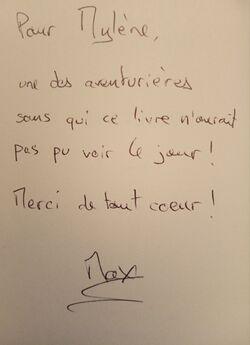 Pour Mylène,
une des aventurières
sans qui ce livre n'aurait
pas pu voir le jour !
Merci de tout coeur !
Max